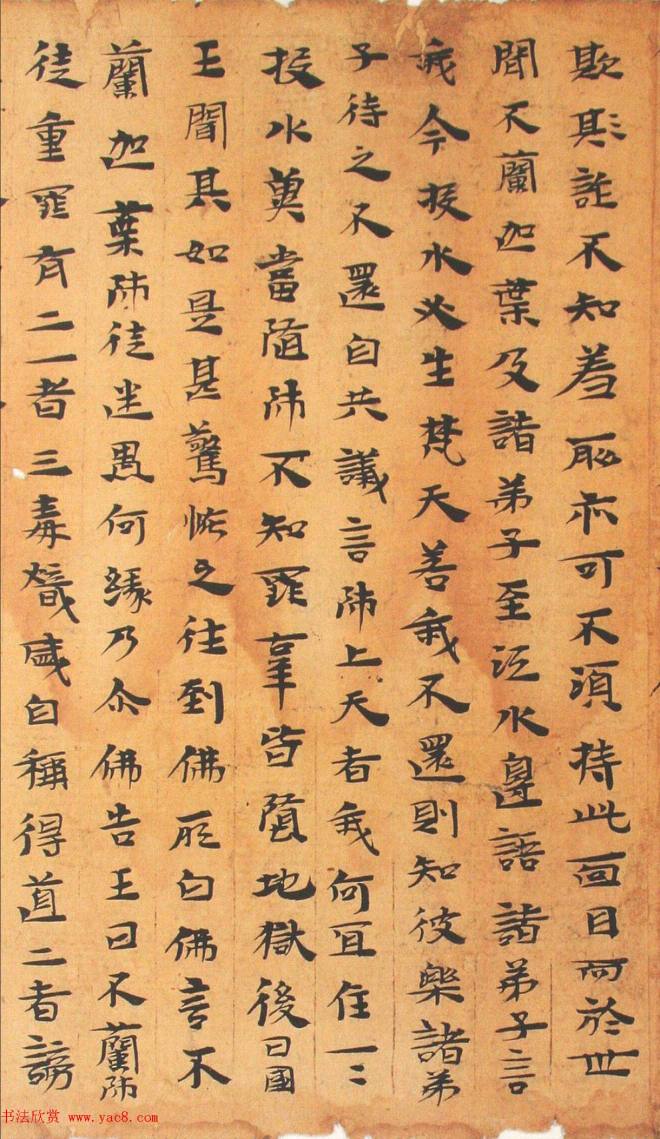 欺欺誑不知羞耻亦可不須持此面目而於世
間不蘭迦葉及諸弟子至江水邊語諸弟子言
我今投水必生梵天若我不還則知彼樂諸弟
子待之不還自共議言師上天者我何宜住一二
投水冀當隨師不知罪牽皆墮地獄後日國
王聞其如是甚驚恠之往到佛所白佛言不
蘭迦葉師徒迷愚何緣乃尒佛告王曰不蘭師
徒重罪有二一者三毒熾盛自稱得道二者謗
书法欣赏 www.yac8.com